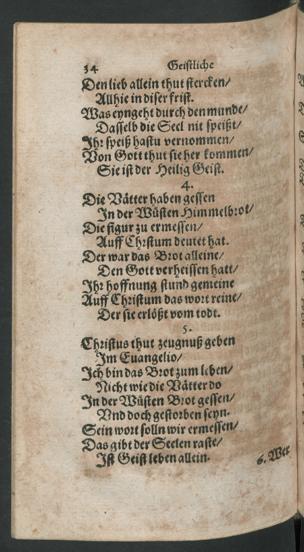 34 Geistliche
Den lieb allein thut stercken/
Allhie in diser frist.
Was eyngeht durch den munde/
Dasselb die Seel nit speißt/
Ihr speiß hastu vernommen/
Von Gott thut sie her kommen/
Sie ist der Heilig Geist.
4.
Die Vätter haben gessen
In der Wüsten Himmelbrot/
Die figur zu ermessen/
Auff Christum deutet hat.
Der war das Brot alleine/
Den Gott verheissen hatt/
Ihr hoffnung stund gemeine
Auff Christum das wort reine/
Der sie erlößt vom todt.
5.
Christus thut zeugnuß geben
Im Euangelio/
Ich bin das Brot zum leben/
Nicht wie die Vätter do
In der Wüsten Brot gessen/
Vnd doch gestorben seyn.
Sein wort solln wir ermessen/
Das gibt der Seelen raste/
Ist Geist leben allein.
6. Wer